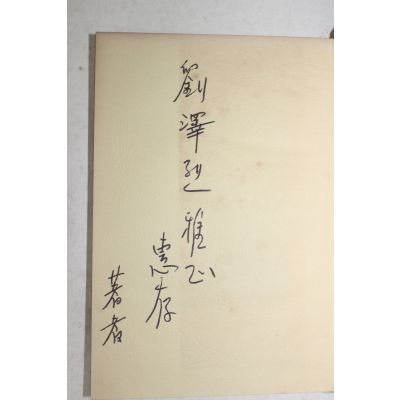 劉澤烈 雅正
惠存
著者